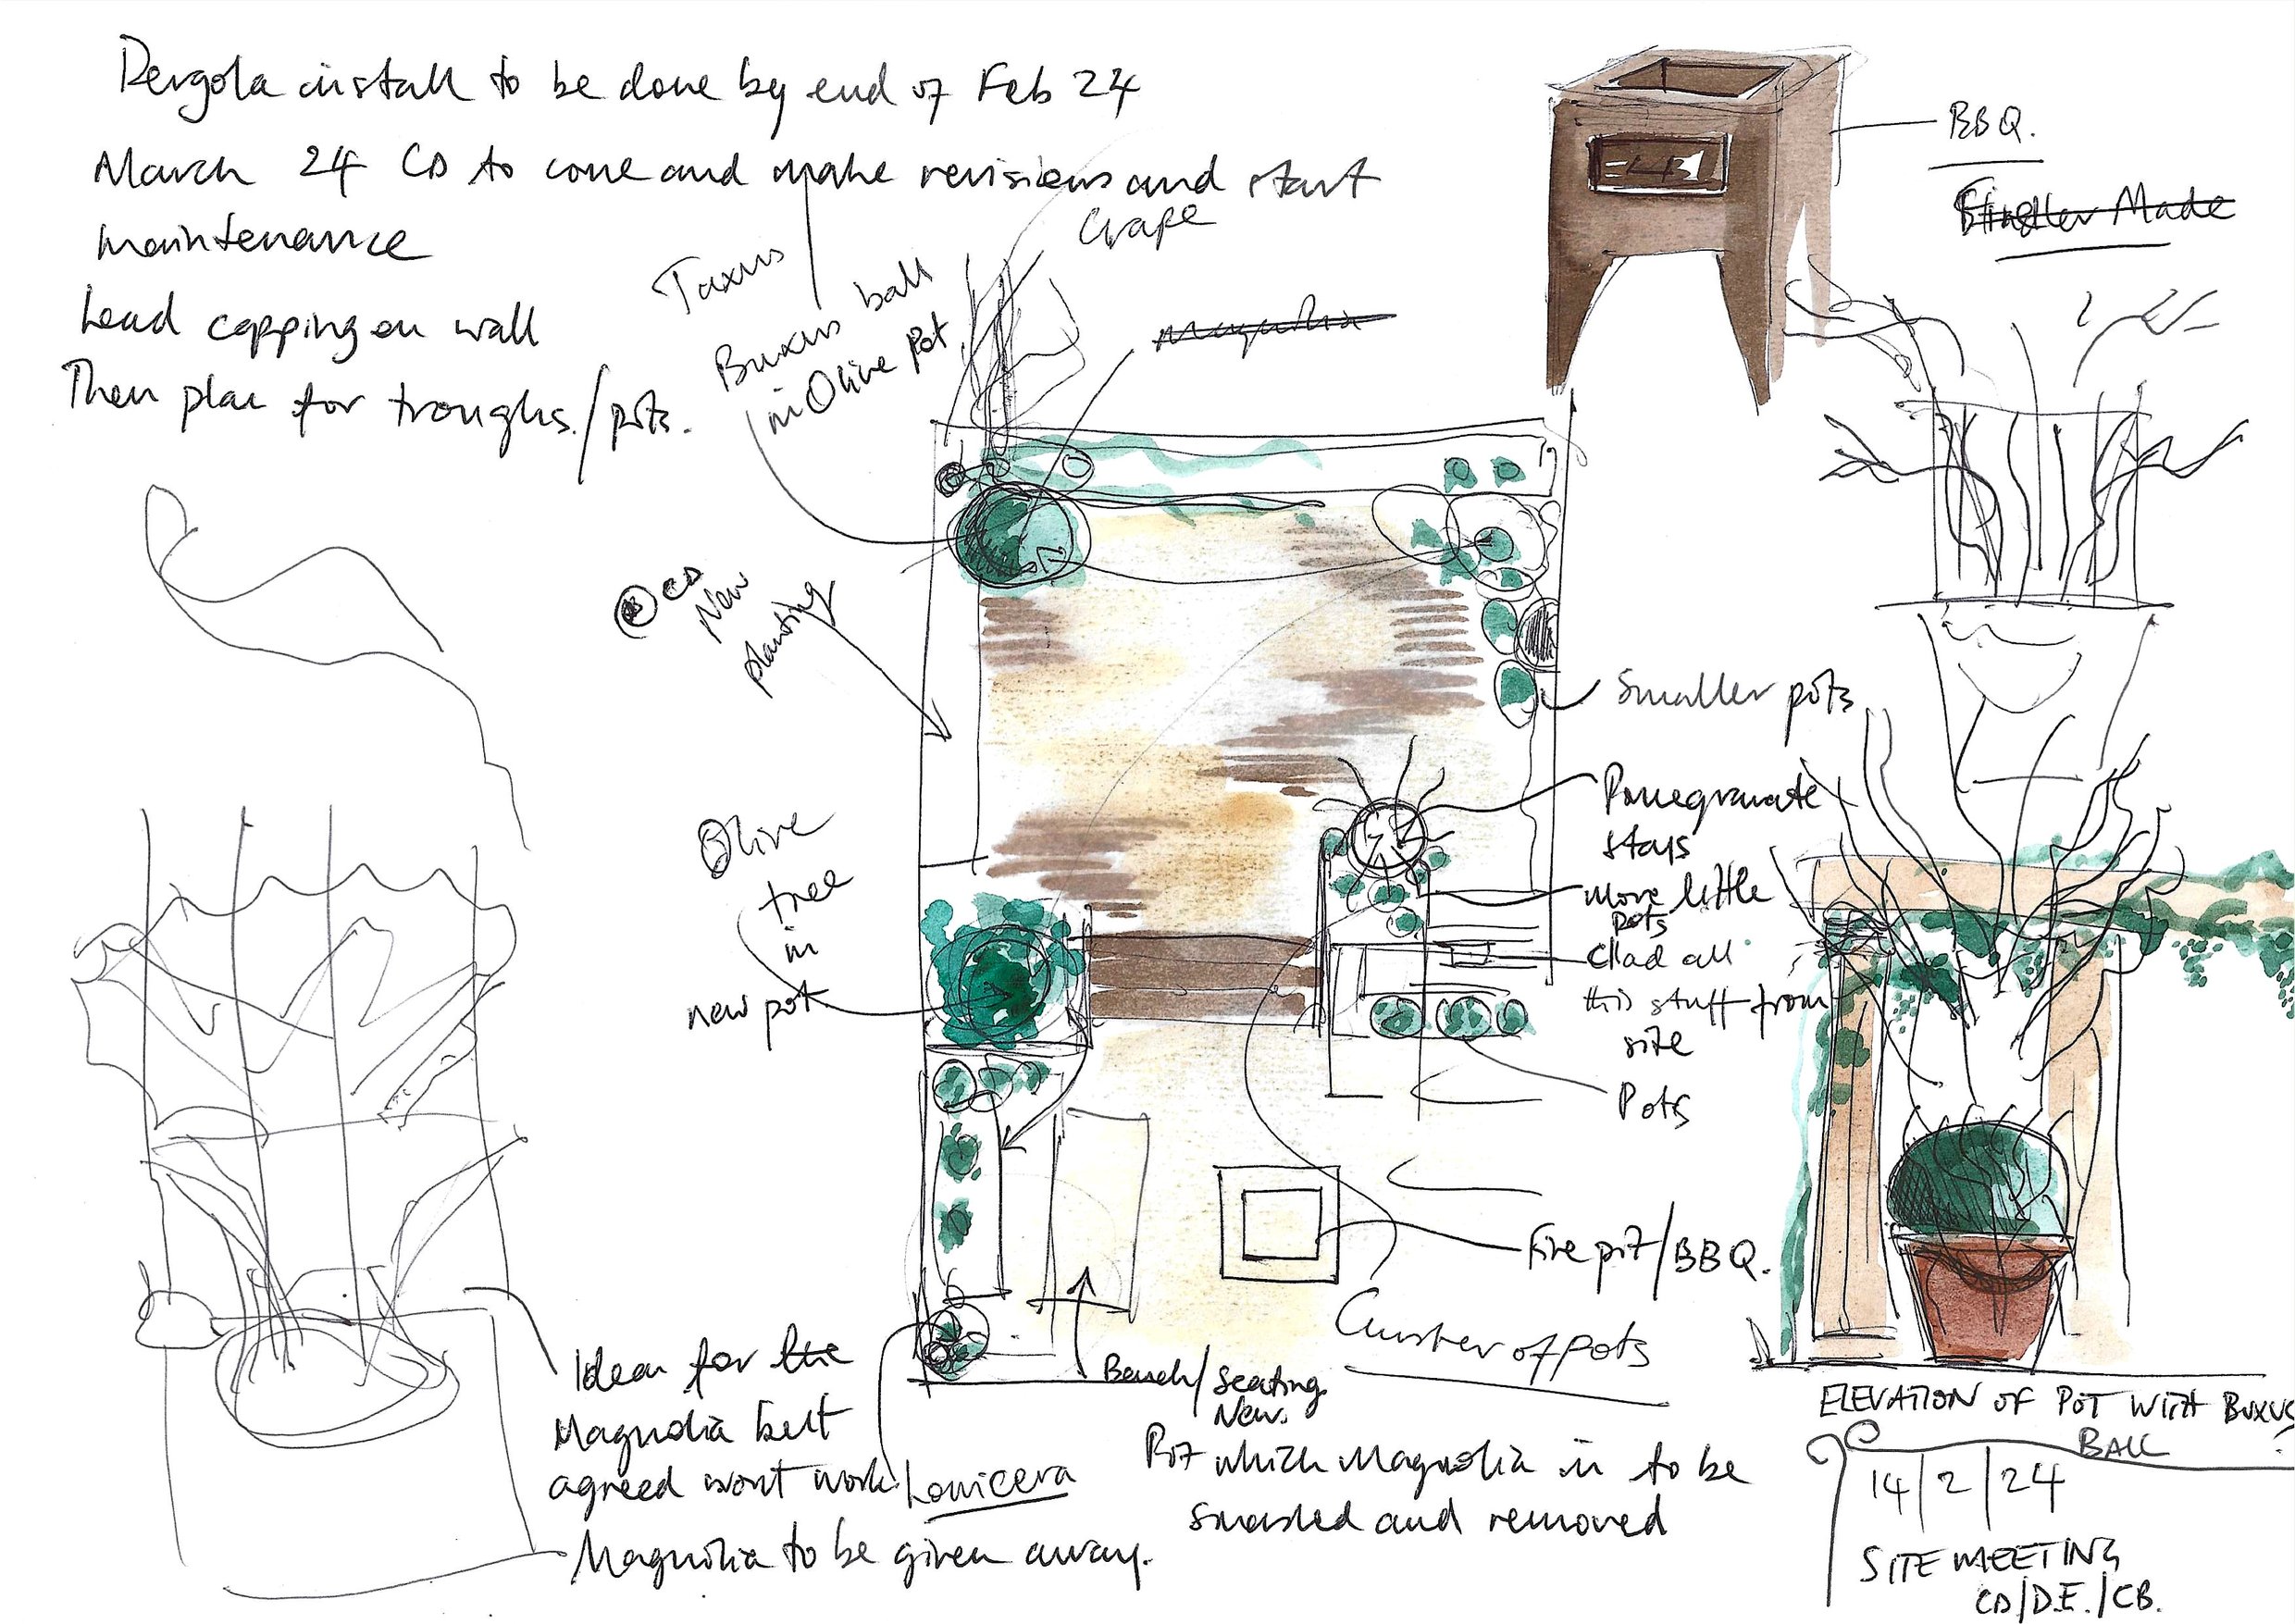 Pergola install to be done by end of Feb 24
March 24 CD to come and make revisions and start
maintenance
Lead capping on wall
Then plan for troughs/pots.
Taxus
Grape
Buxus ball
in Olive Pot
Magnolia
BBQ.
Made
CD
New
planting
Smaller pots
Pomegranate
stays
More little
pots
Clad all
this stuff from
site
Pots
Olive
tree
in
new pot
Fire pit/BBQ.
Cluster of pots
Bench/Seating
New.
Idea for the
Magnolia but
agreed wont work
Lonicera
Magnolia to be given away.
Pot which Magnolia in to be
smashed and removed
ELEVATION OF POT WITH BUXUS
BALL
14/2/24
SITE MEETING
CD/D.E./CB.